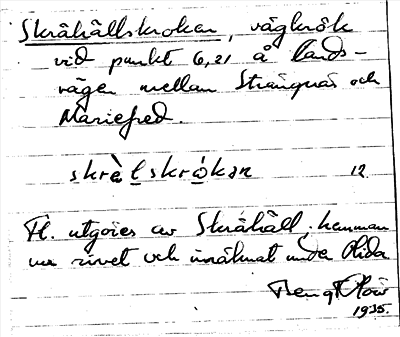 Skråhällskroken, vägkrök
vid punkt 6,21 å lands-
vägen mellan Strängnäs och
Mariefred.
skrὲlskrókən 12
Fl. utgöres av Skråhäll; hemman
rivet och inräknat under
Bengt
1935.